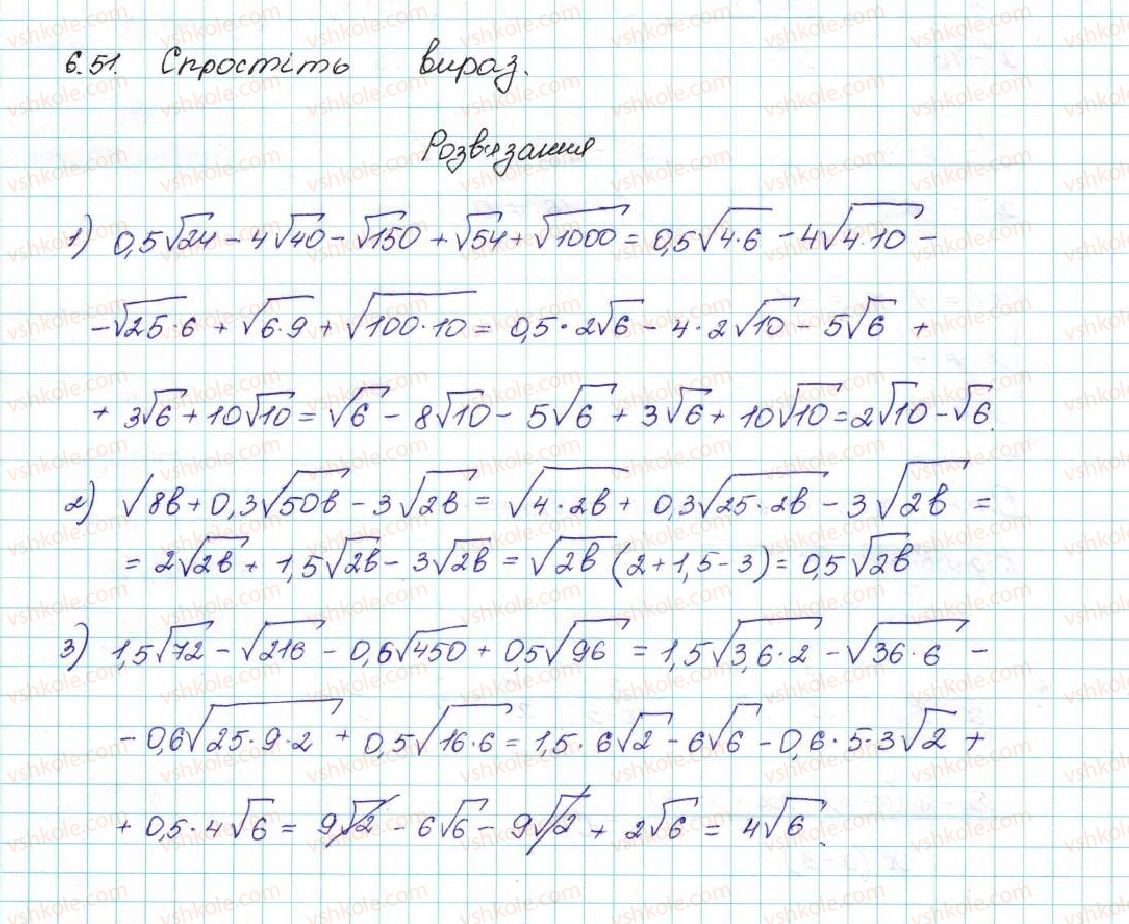 6.51. Спростіть вираз.
Розвязання
1) 0,5√24 - 4√40 - √150 + √54 + √1000 = 0,5√4·6 - 4√4·10 -
- √25·6 + √6·9 + √100·10 = 0,5·2√6 - 4·2√10 - 5√6 +
+ 3√6 + 10√10 = √6 - 8√10 - 5√6 + 3√6 + 10√10 = 2√10 - √6.
2) √8b + 0,3√50b - 3√2b = √4·2b + 0,3√25·2b - 3√2b =
= 2√2b + 1,5√2b - 3√2b = √2b (2 + 1,5 - 3) = 0,5√2b
3) 1,5√72 - √216 - 0,6√450 + 0,5√96 = 1,5√3,6·2 - √36·6 -
- 0,6√25·9·2 + 0,5√16·6 = 1,5·6√2 - 6√6 - 0,6·5·3√2 +
+ 0,5·4√6 = 9√2 - 6√6 - 9√2 + 2√6 = 4√6.